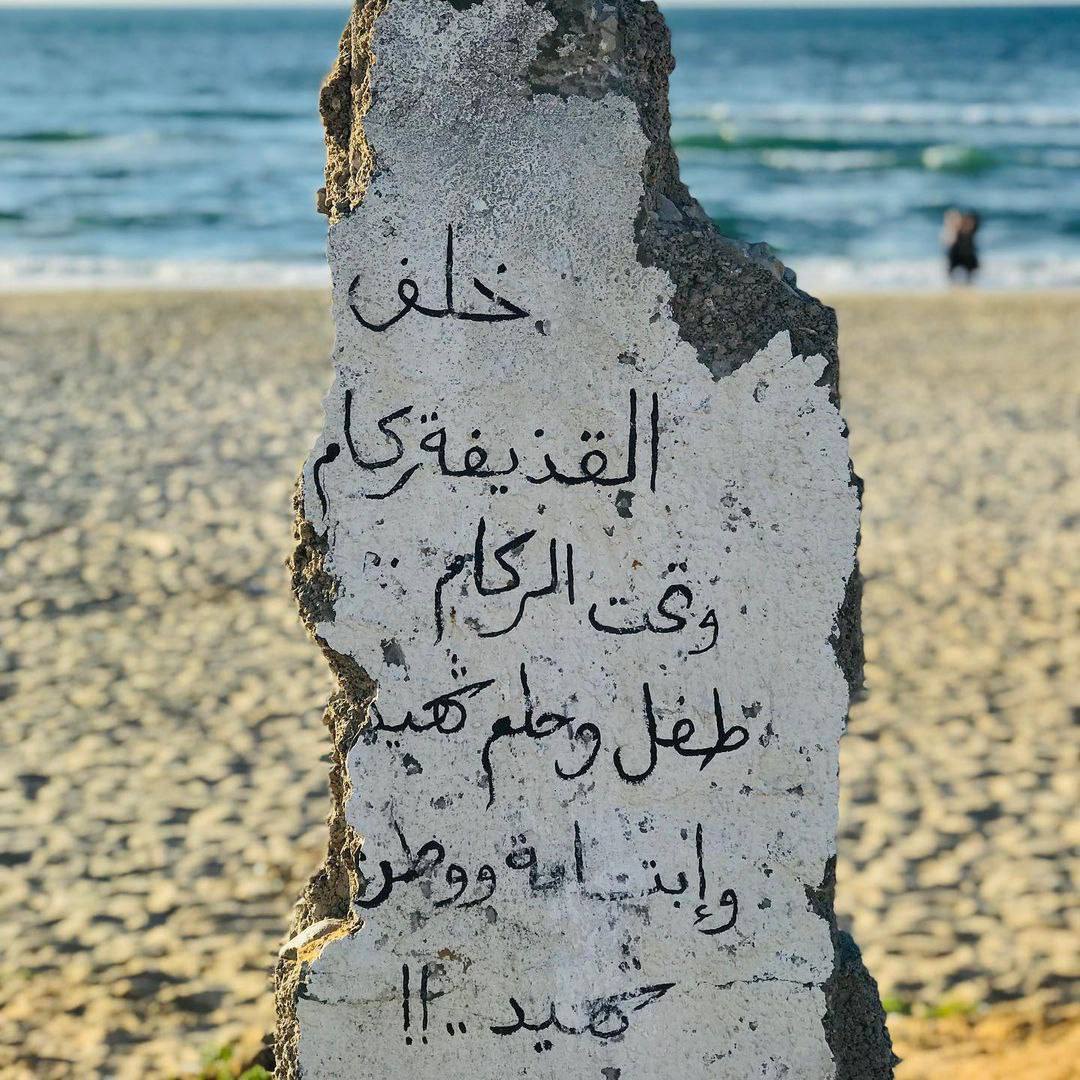 خلف
القذيفة ركام
وتحت الركام
طفل وحلم شهيد
وإبتسامة ووطن
شهيد..!!